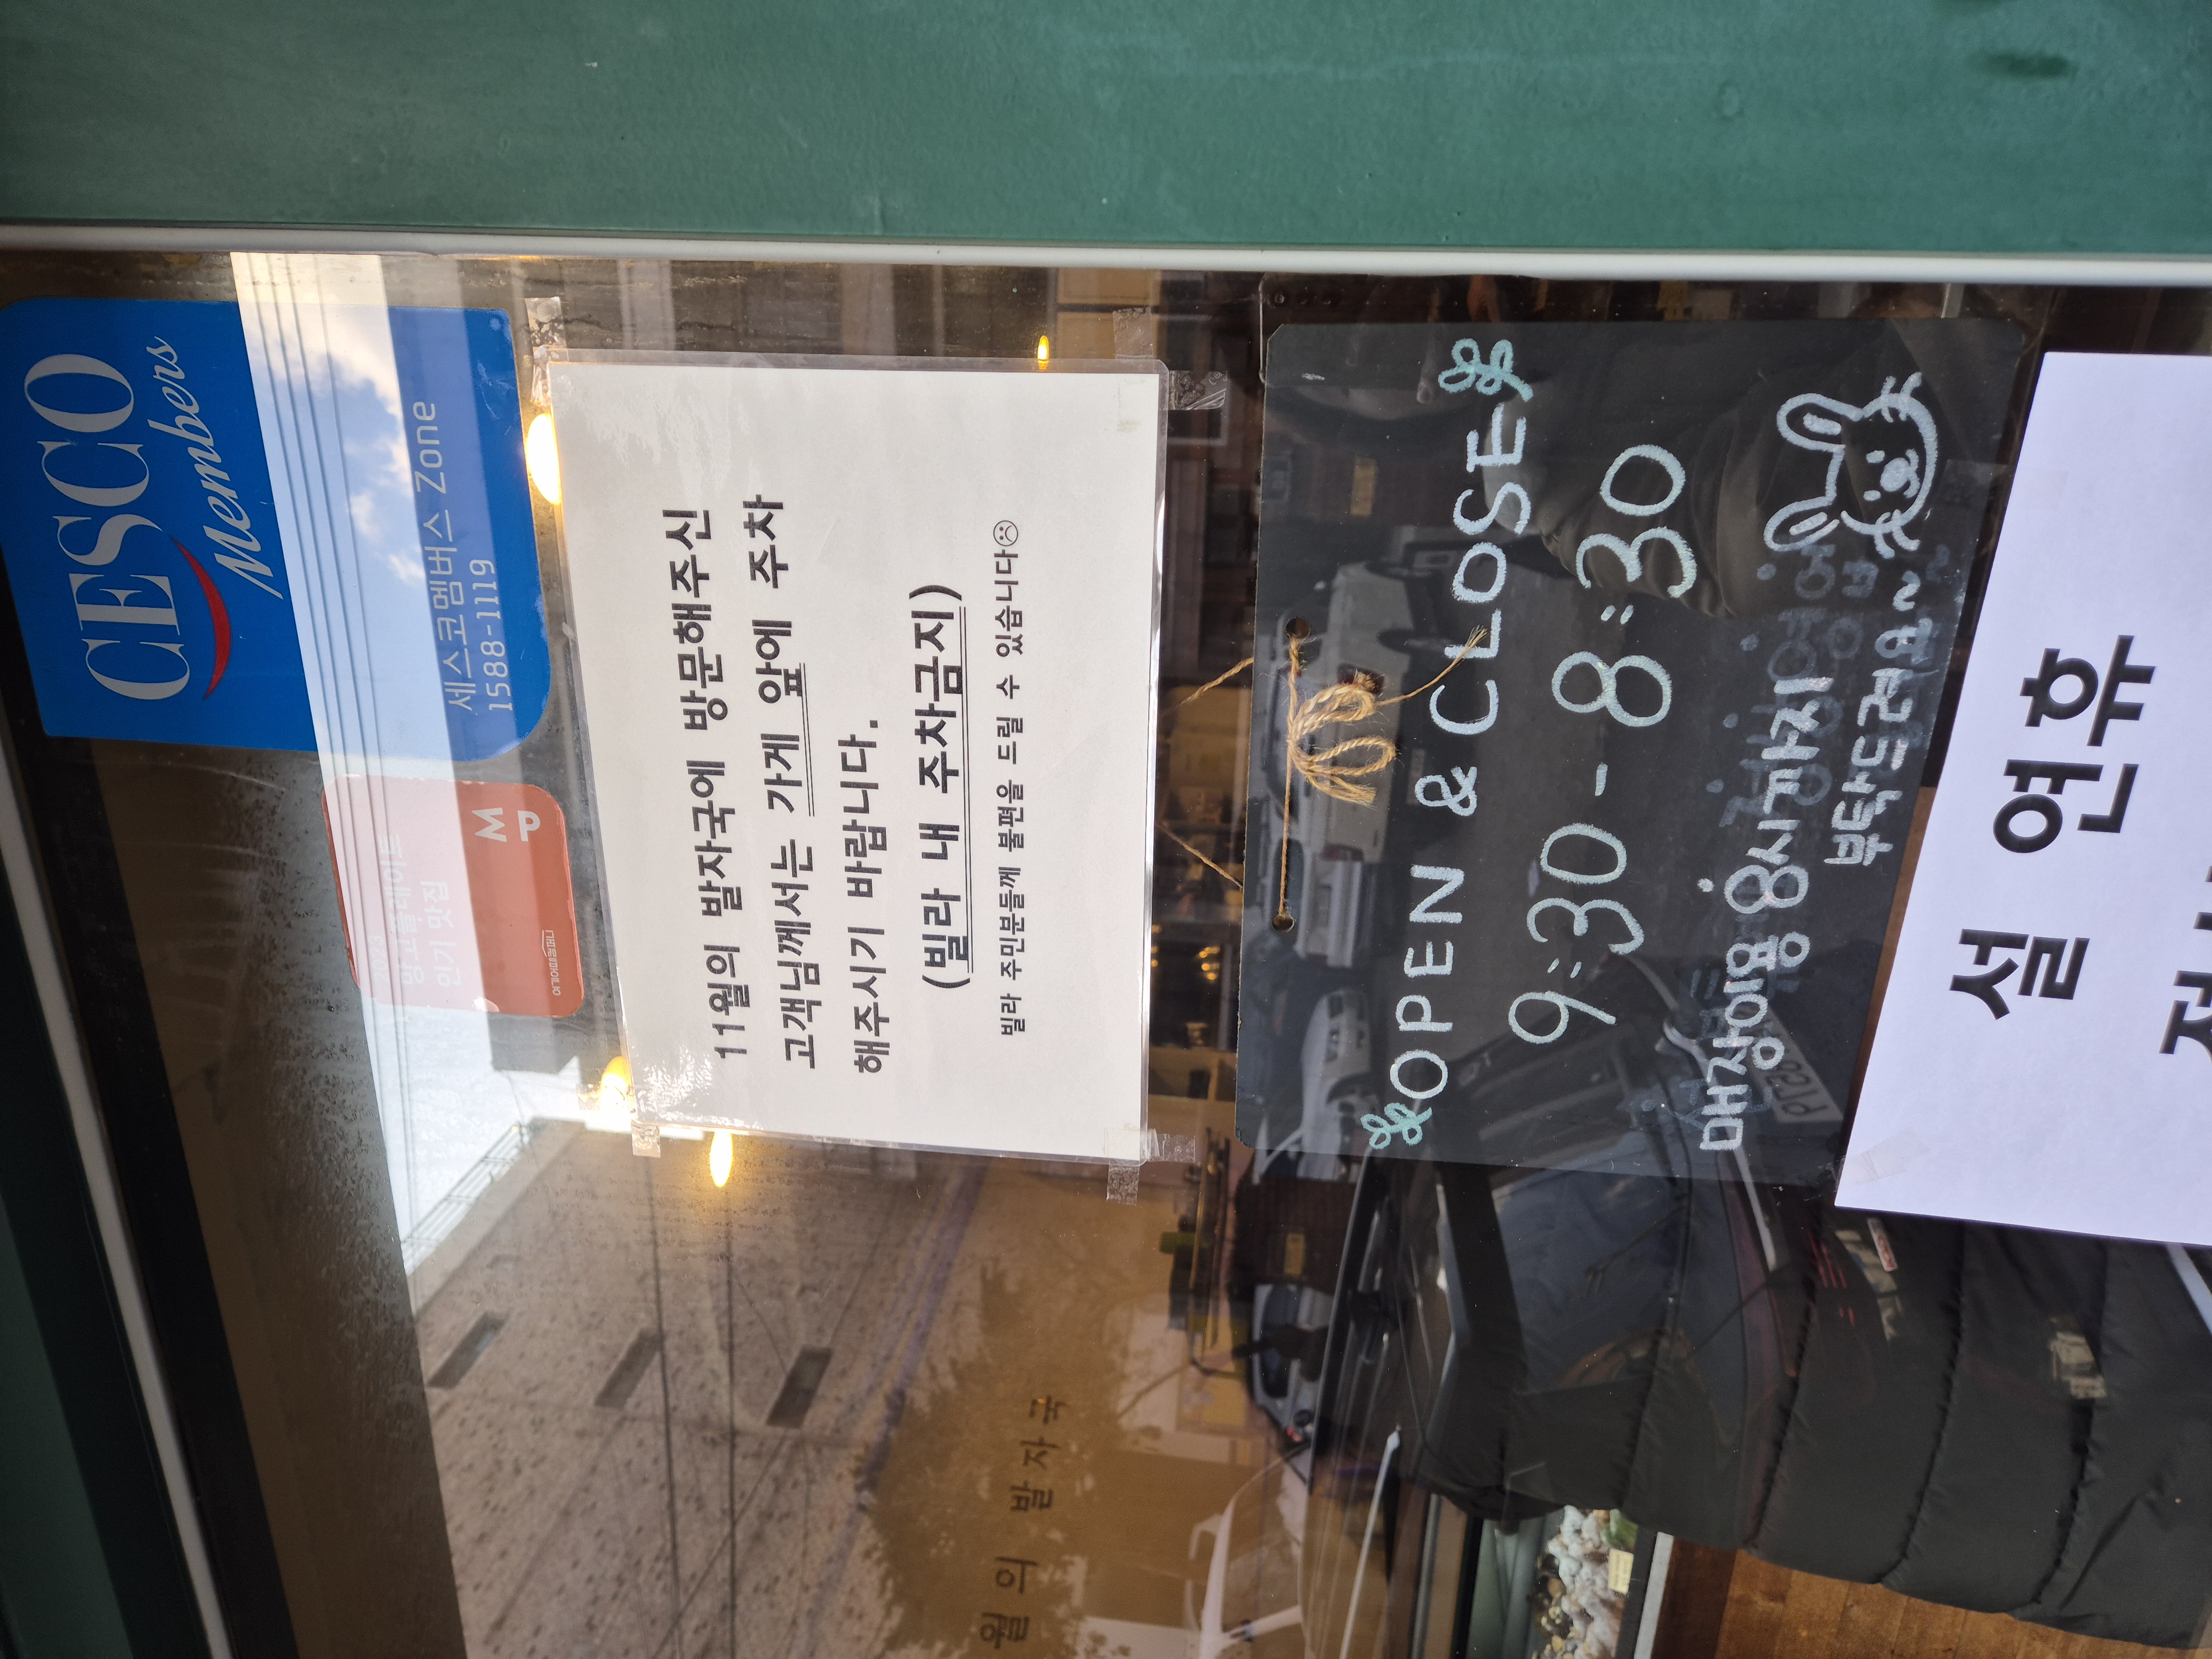 CESCO
Members
세스코멤버스 Zone
1588-1119
2023
망고플레이트
인기 맛집
MP
여기어때컴퍼니
11월의 발자국에 방문해주신
고객님께서는 가게 앞에 주차
해주시기 바랍니다.
(빌라 내 주차금지)
빌라 주민분들께 불편을 드릴 수 있습니다☹
월의 발자국
OPEN & CLOSE
9:30 - 8:30
매장이용 8시까지
부탁드려요~
설 연휴